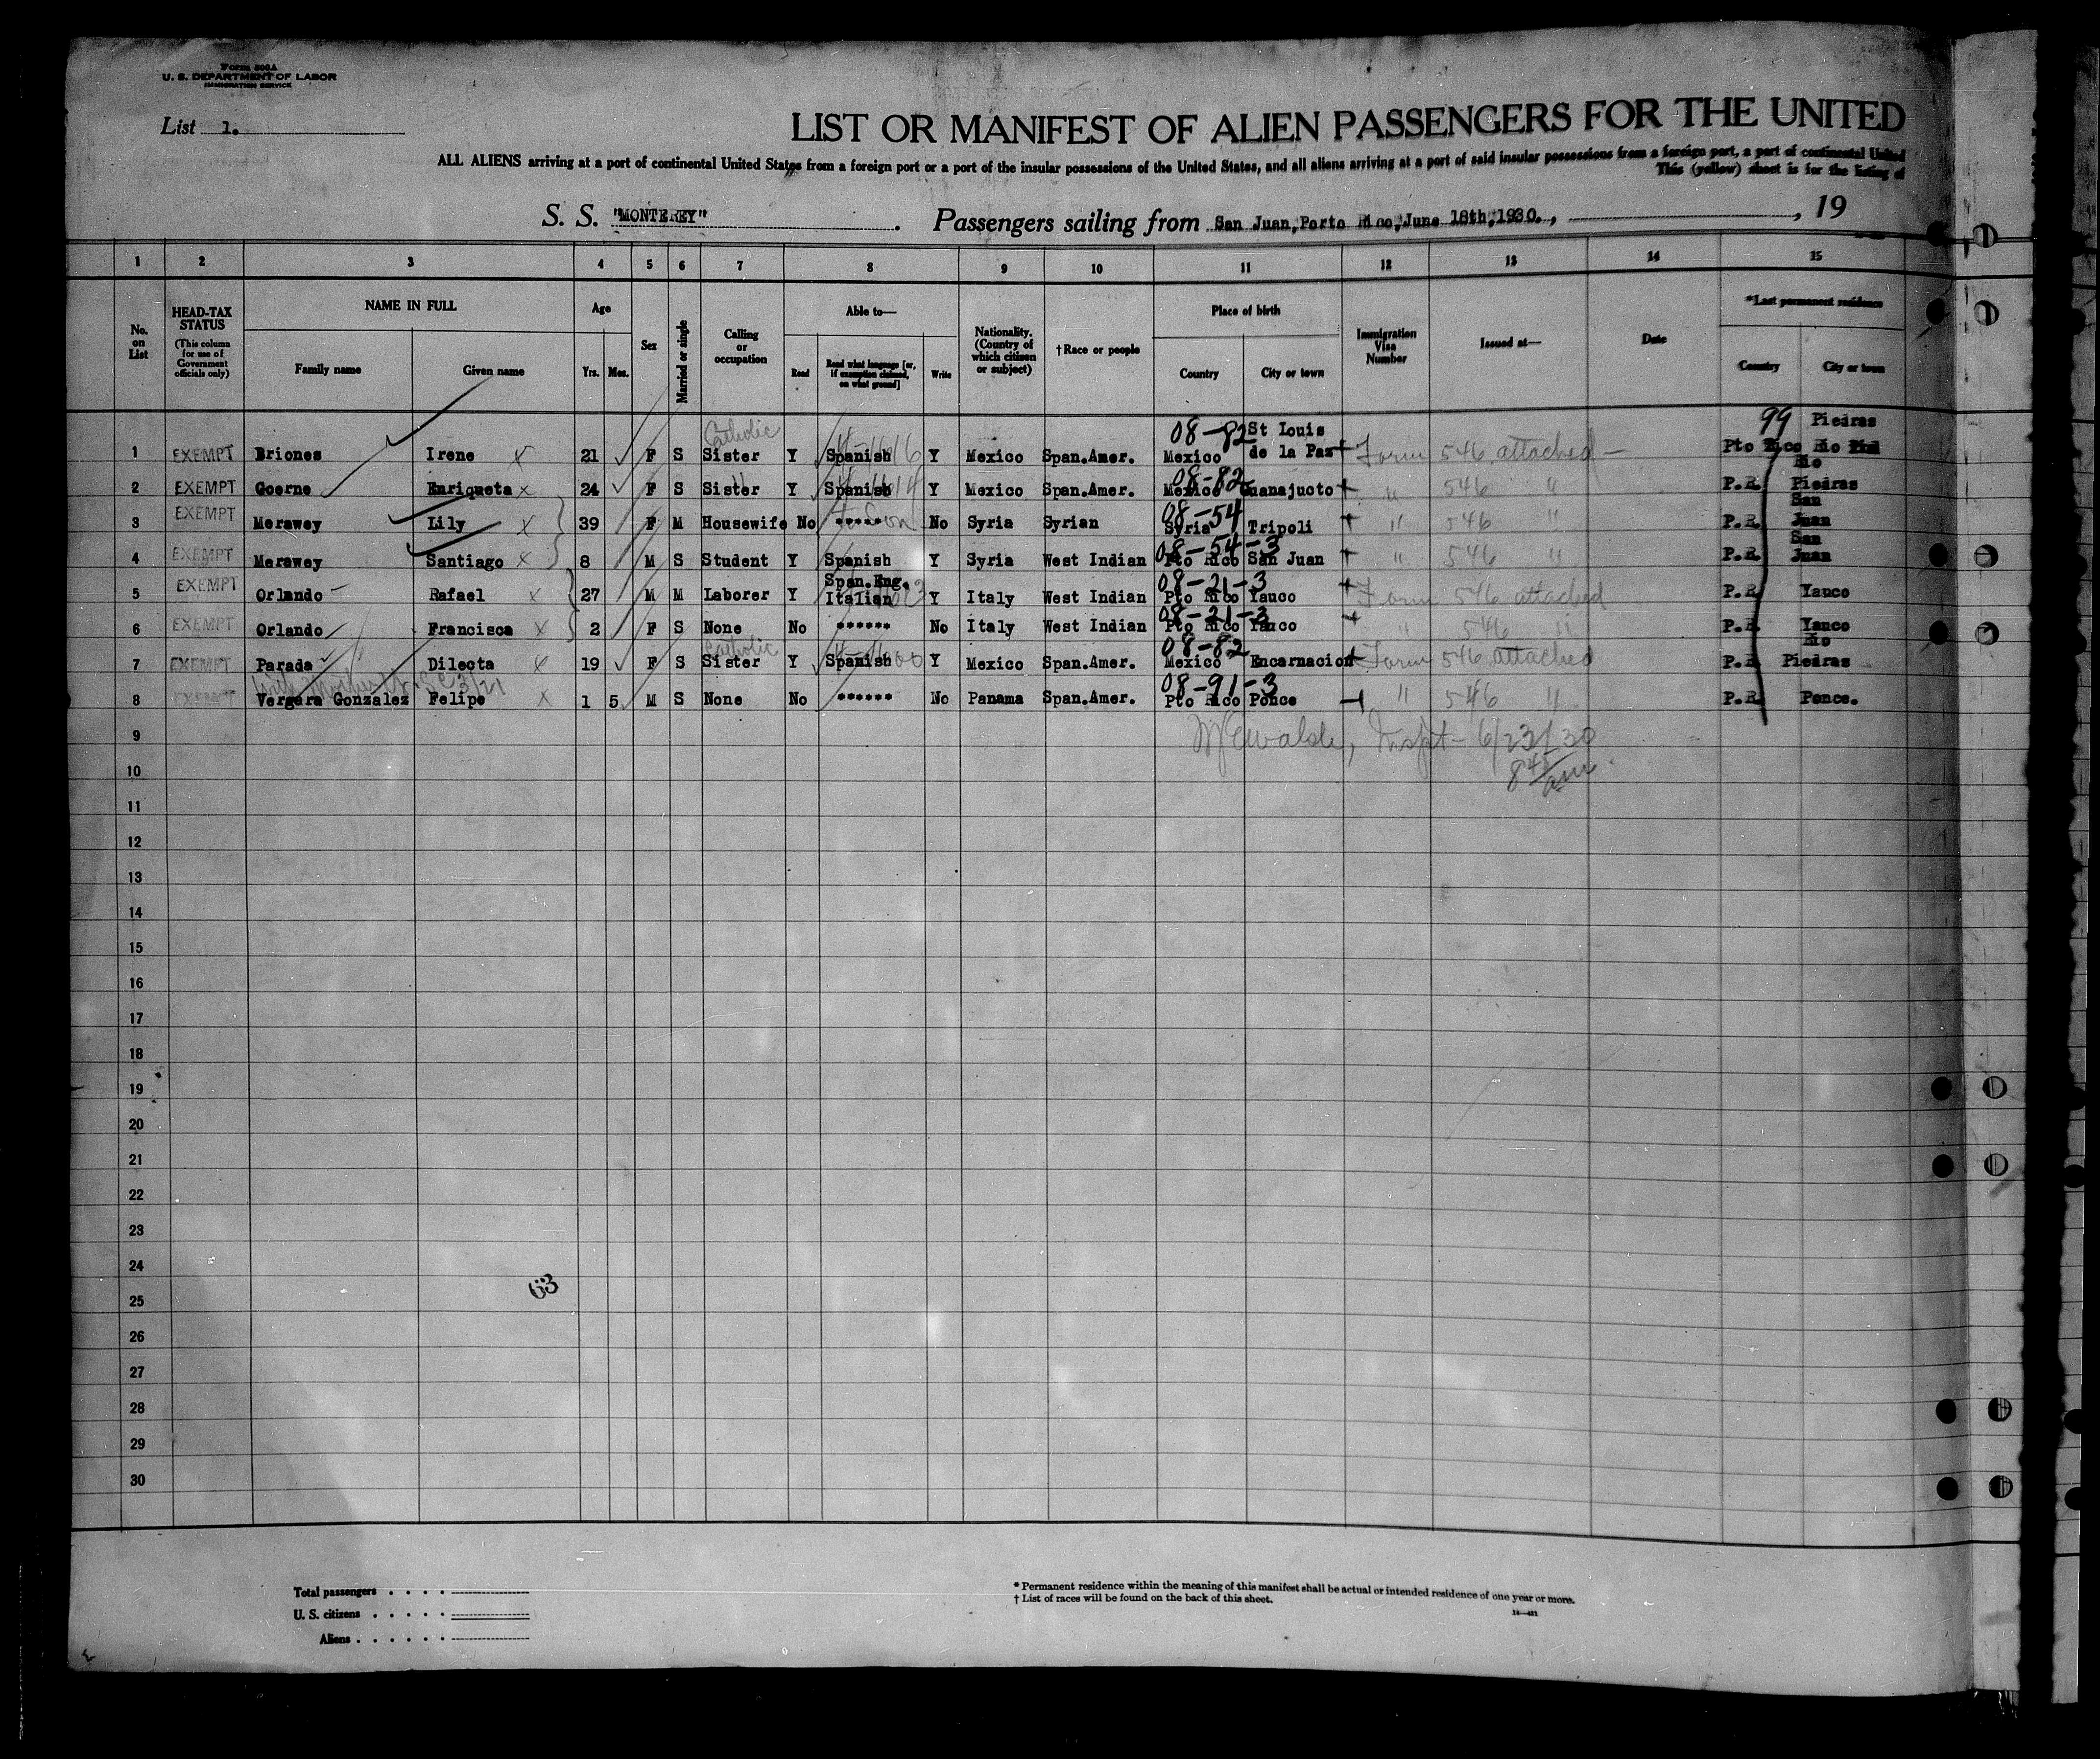 Form 500A
U. S. DEPARTMENT OF LABOR
IMMIGRATION SERVICE
List 1.
LIST OR MANIFEST OF ALIEN PASSENGERS FOR THE UNITED
ALL ALIENS arriving at a port of continental United States from a foreign port or a port of the insular possessions of the United States, and all aliens arriving at a port of said insular possessions from a foreign port, a port of continental United
This (yellow) sheet is for the listing of
S. S. "MONTEREY". Passengers sailing from San Juan, Porto Rico, June 18th, 1930., , 19
1 2 3 4 5 6 7 8 9 10 11 12 13 14 15
No. on List
HEAD-TAX STATUS
(This column for use of Government officials only)
NAME IN FULL
Family name
Given name
Age
Yrs.
Mos.
Sex
Married or single
Calling or occupation
Able to—
Read
Read what language [or, if exemption claimed, on what ground]
Write
Nationality. (Country of which citizen or subject)
†Race or people
Place of birth
Country
City or town
Immigration Visa Number
Issued at—
Date
*Last permanent residence
Country
City or town
Catholic 08-82 St Louis 99 Piedras
1 EXEMPT Briones Irene x 21 F S Sister Y Spanish Y Mexico Span.Amer. Mexico de la Paz Form 546 attached Pto Rico Rio
08-82 Rio
2 EXEMPT Goerne Enriqueta x 24 F S Sister Y Spanish Y Mexico Span.Amer. Mexico Guanajucto " 546 " P.R. Piedras
08-54 San
3 EXEMPT Merawey Lily x 39 F M Housewife No ***** No Syria Syrian Syria Tripoli " 546 " P.R. Juan
08-54-3 San
4 EXEMPT Merawey Santiago x 8 M S Student Y Spanish Y Syria West Indian Pto Rico San Juan " 546 " P.R. Juan
Span.Eng. 08-21-3
5 EXEMPT Orlando Rafael x 27 M M Laborer Y Italian Y Italy West Indian Pto Rico Yauco Form 546 attached P.R. Yauco
08-21-3
6 EXEMPT Orlando Francisca x 2 F S None No ****** No Italy West Indian Pto Rico Yauco " 546 " P.R. Yauco
Catholic 08-82 Rio
7 EXEMPT Parada Dilecta x 19 F S Sister Y Spanish Y Mexico Span.Amer. Mexico Encarnacion Form 546 attached P.R. Piedras
08-91-3
8 EXEMPT Vergara Gonzalez Felipe x 1 5 M S None No ****** No Panama Span.Amer. Pto Rico Ponce " 546 " P.R. Ponce.
9 Inspt - 6/23/30
10 8 am
11
12
13
14
15
16
17
18
19
20
21
22
23
24
63
25
26
27
28
29
30
Total passengers
U. S. citizens
Aliens
* Permanent residence within the meaning of this manifest shall be actual or intended residence of one year or more.
† List of races will be found on the back of this sheet.